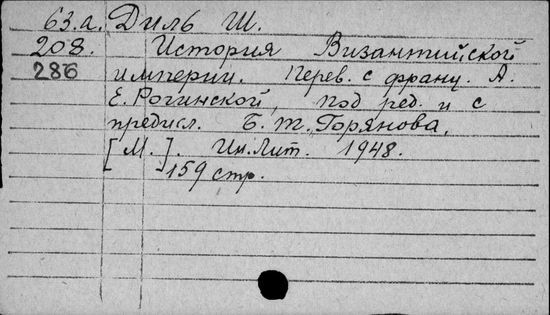 63.а. Диль Ш.
208. История Византийской
286 империи. Перев. с франц. А.
Е. Рогинской, под ред. и с
предисл. Б. Т. Горянова,
[М.]. Ин. Лит. 1948.
159 стр.